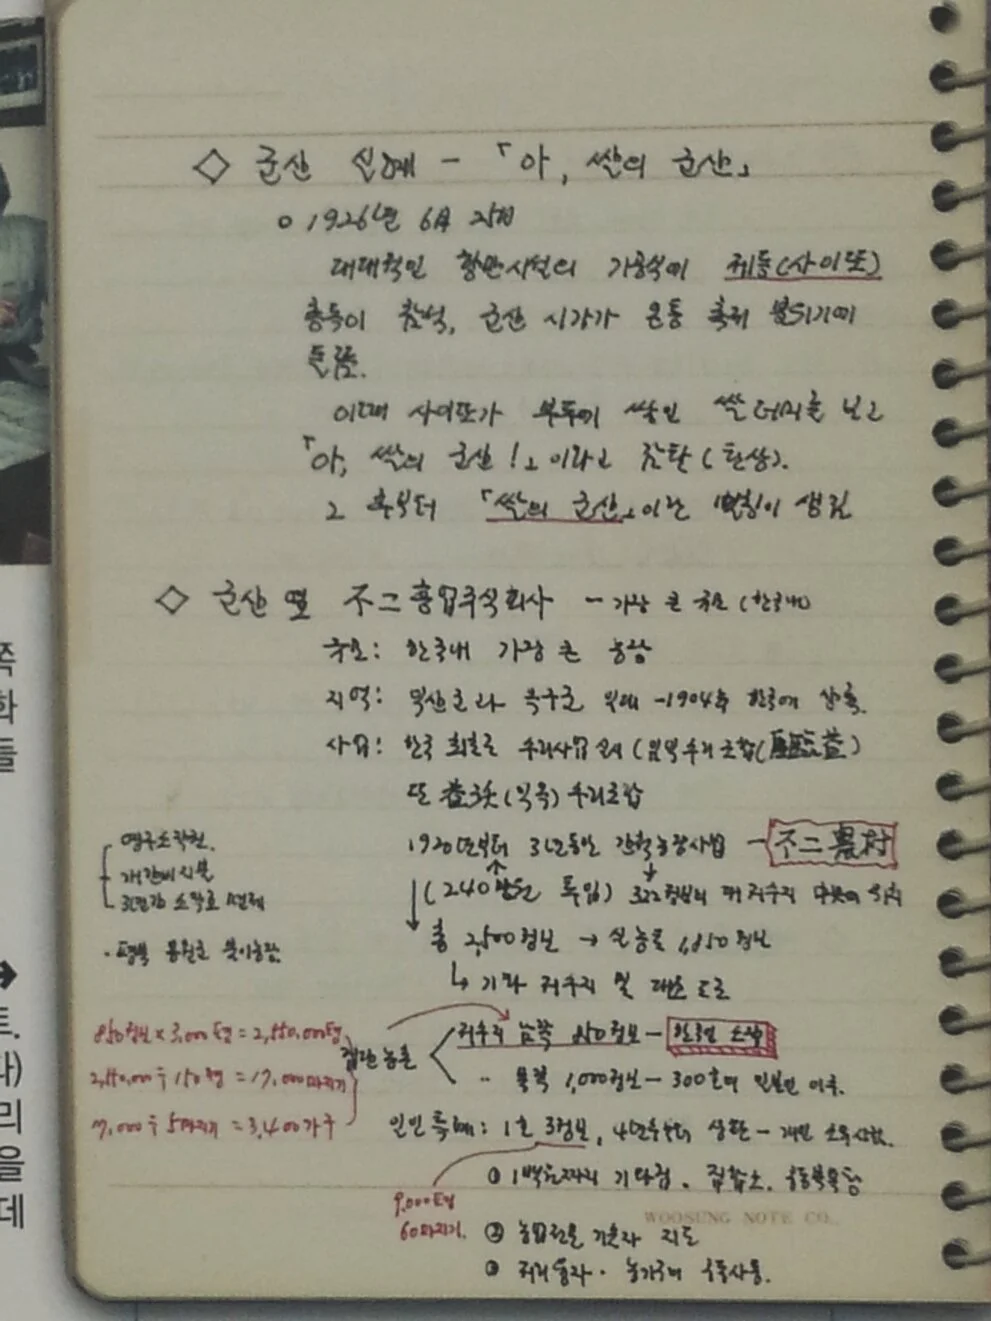 ◇ 군산 실예 - 「아, 쌀의 군산」
○ 1926년 6月
대대적인 항만시설의 기공식에 제등(사이또)
총독이 참석, 군산 시가가 온통 축제 분위기에
들뜸.
이때 사이또가 부두에 쌓인 쌀더미를 보고
「아, 쌀의 군산!」이라고 감탄(탄상).
그 후부터 「쌀의 군산」이란 별칭이 생김
◇ 군산 옆 不二흥업주식회사 - 가장 큰 규모(한국내)
규모: 한국내 가장 큰 농장
지역: 익산군과 옥구군 위에 -1904年 한국에 상륙.
사업: 한국 최초로 수리사업 실시(임익수리조합(臨益)
또 益沃(익옥)수리조합
1920년부터 3년동안 간척농장사업 - 不二農村
(240만원 투입)
총 2,500정보 → 실농토 1,850정보
↳ 기타 저수지 및 대소 도로
영구소작권.
개간비 지불
3년간 소작료 면제
· 평북 용천군 불이농장
850정보 x 3,000평 = 2,550,000평
2,550,000 ÷ 150평 = 17,000마지기
17,000 ÷ 5마지기 = 3,400가구
집단농촌
저수지 남쪽 850정보 - 한국인 소작
〃 북쪽 1,000정보 - 300호의 일본인 이주.
일인 특혜: 1호 3정보, 4년후부터 상환 - 개인 소유
9,000평
60마지기.
WOOSUNG NOTE CO.
② 농업전문 기술자 지도
③ 농기구의 공동사용.
쪽
화
들
➔
트.
다)
리
을
데